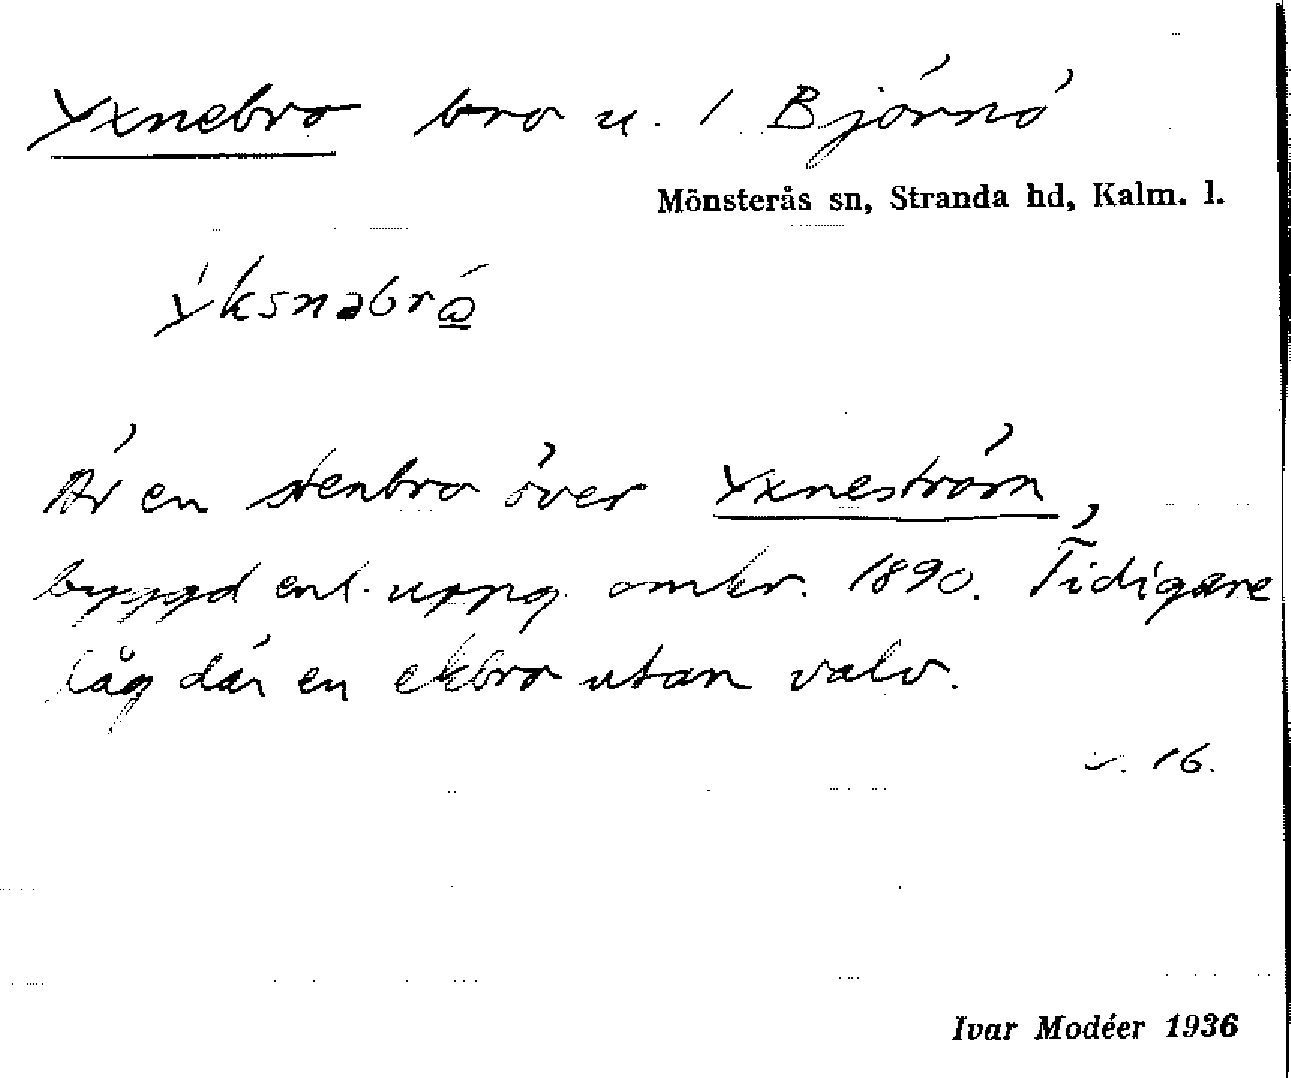 Yxnebro bro u. 1 Björnö
Mönsterås sn, Stranda hd, Kalm. l.
ýksnəbrώ̲
Är en stenbro över Yxneström,
byggd enl. uppg. omkr. 1890. Tidigare
låg där en ekbro utan valv.
v. 16.
Ivar Modéer 1936